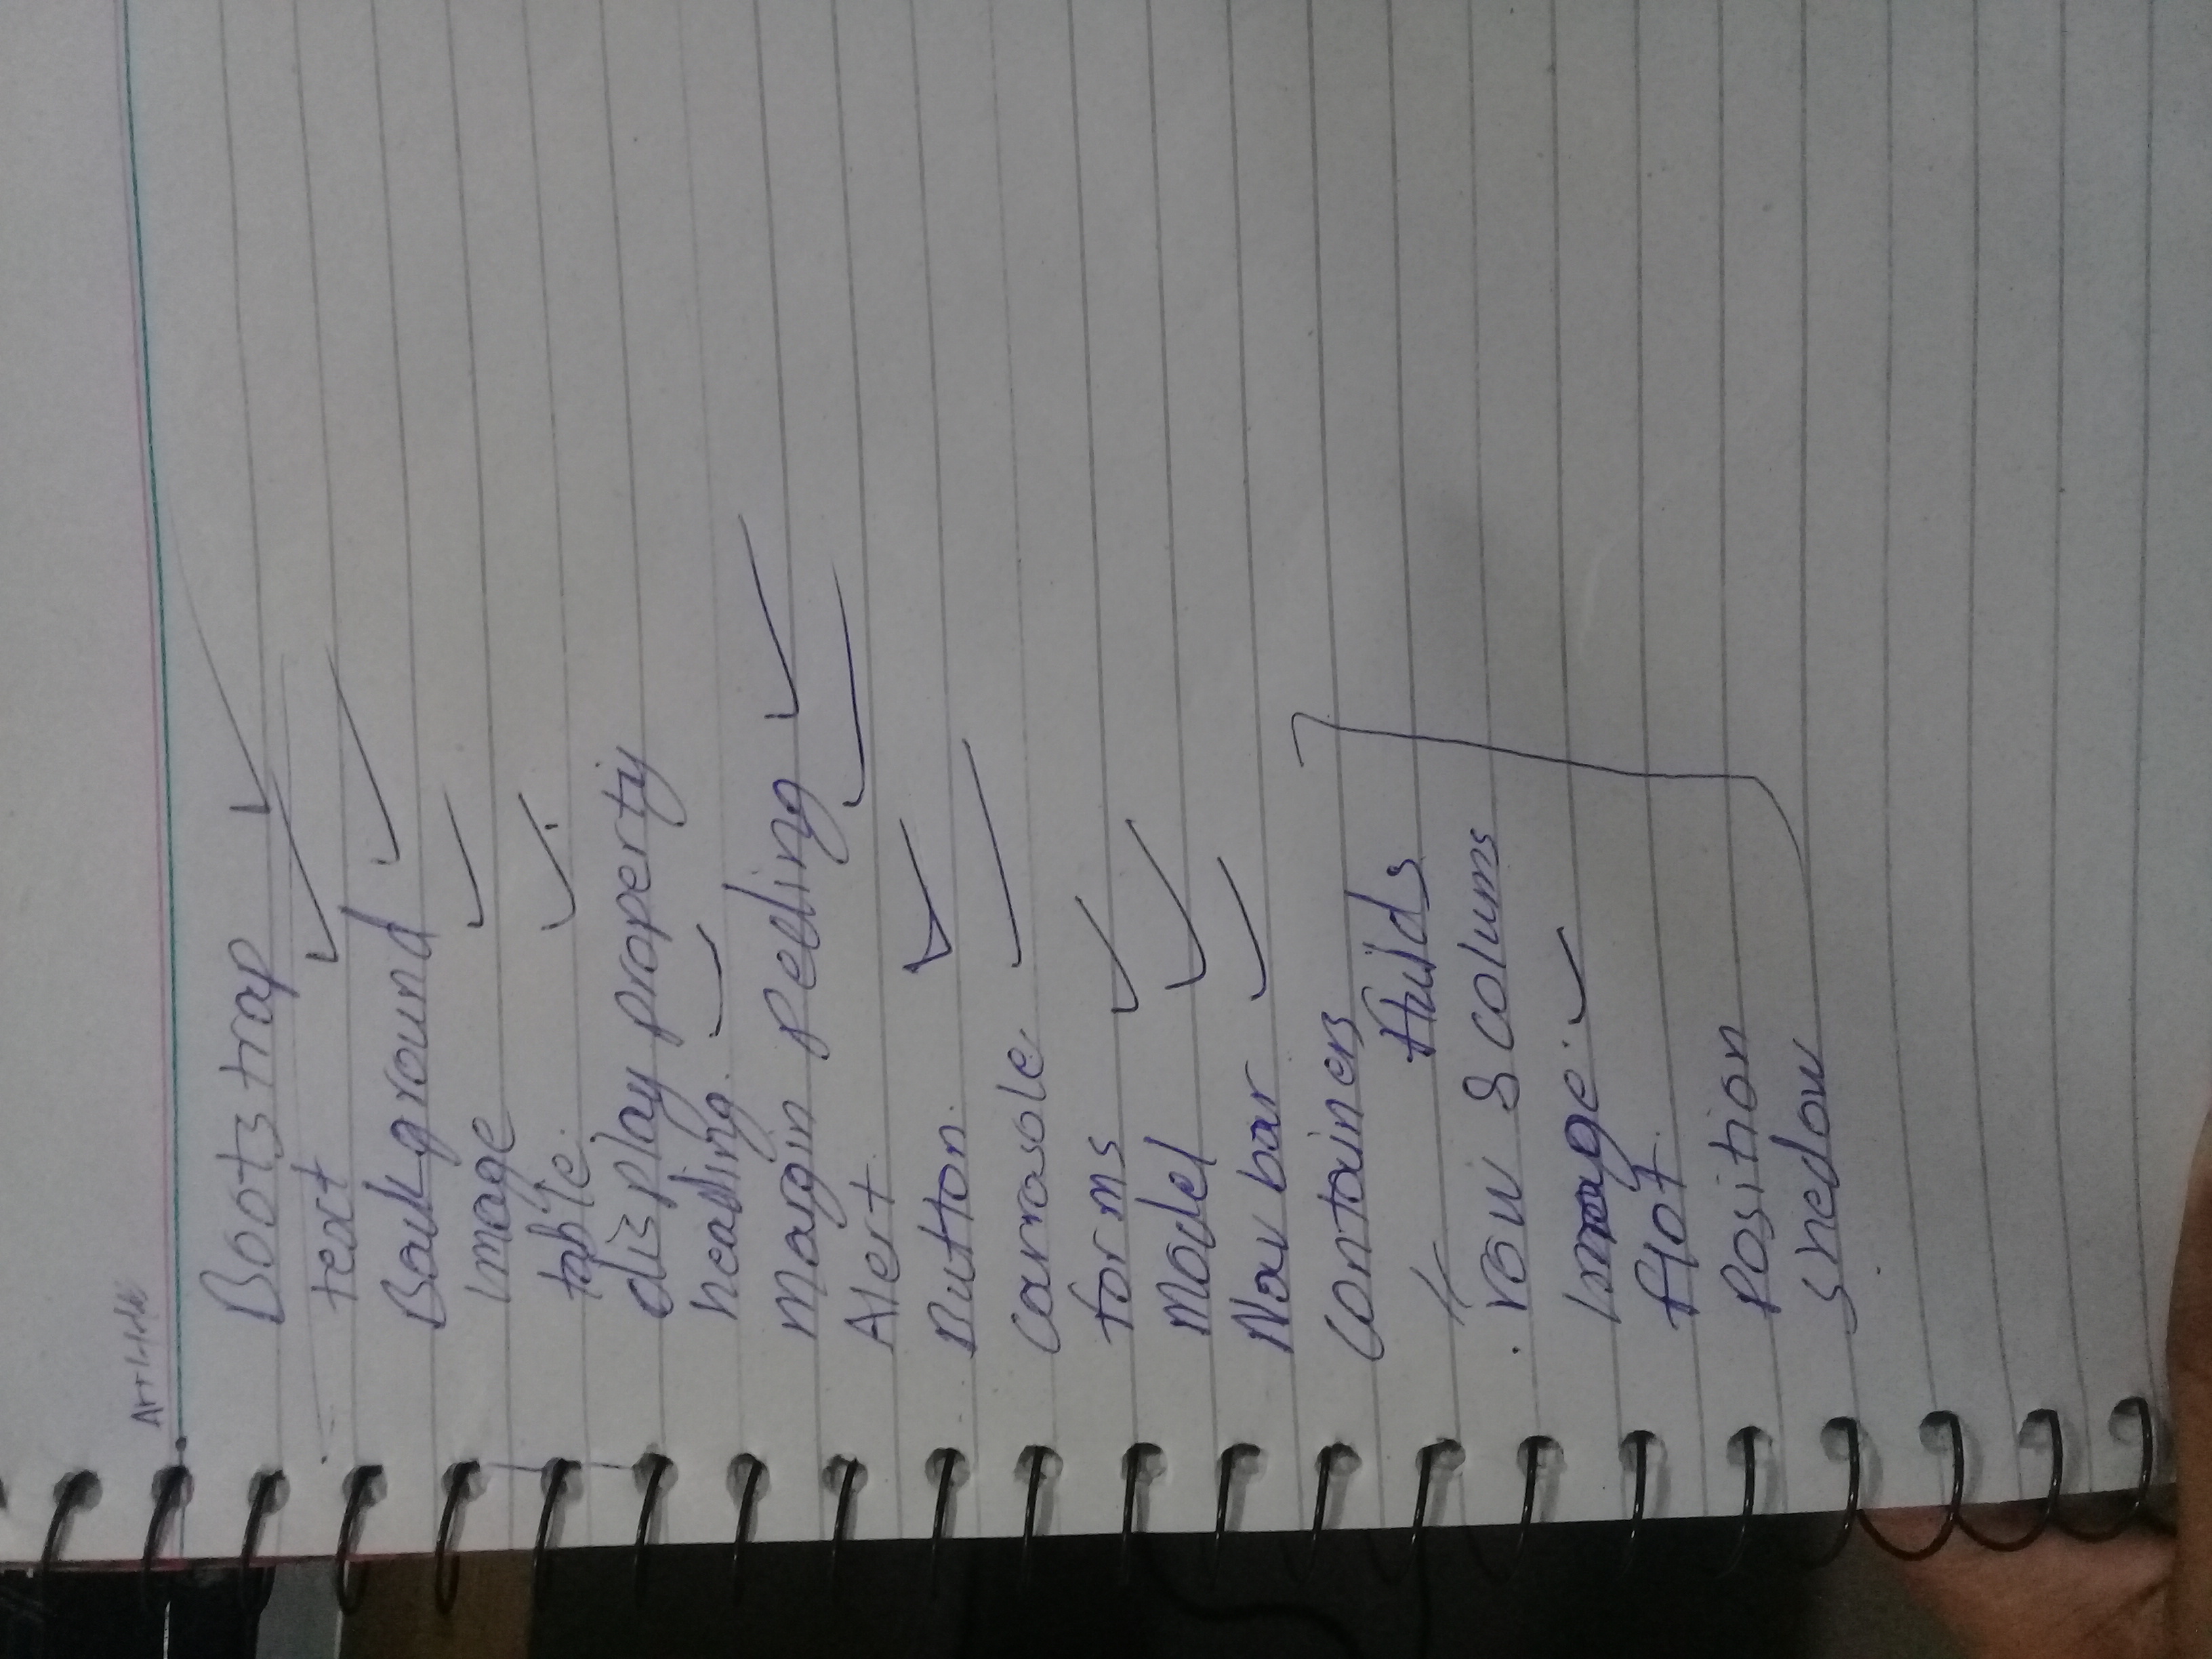 Bootstrap
text
Background
Image
table.
display property
heading.
Margin Pedding
Alert
Button.
Carrosole
forms
Model
Nav bar
Containers
〃 fluids
row & colums
Image.
flot
Position
shedow